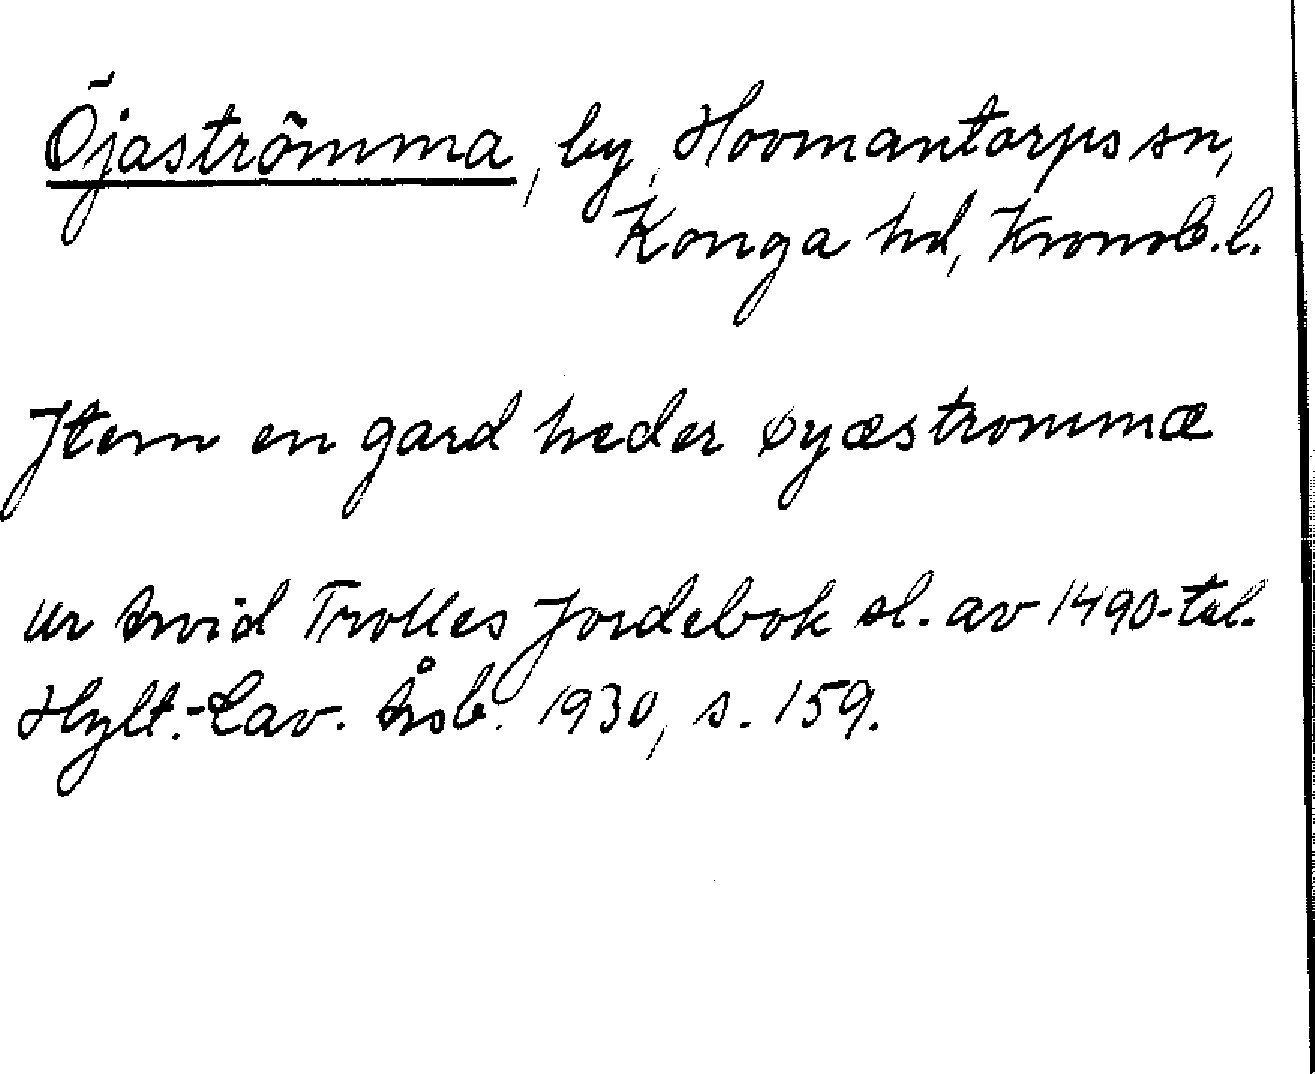 Öjaströmma, by, Hovmantorps sn,
Konga hd, Kronob.l.
Jtem en gard heder øyæstrommæ
ur Arvid Trolles Jordebok sl. av 1490-tal.
Hylt.-Cav. Årsb. 1930, s. 159.